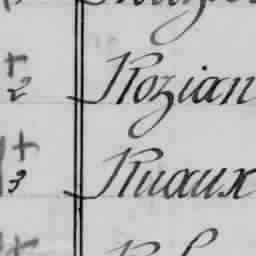 2 Rozian
3 Ruaux